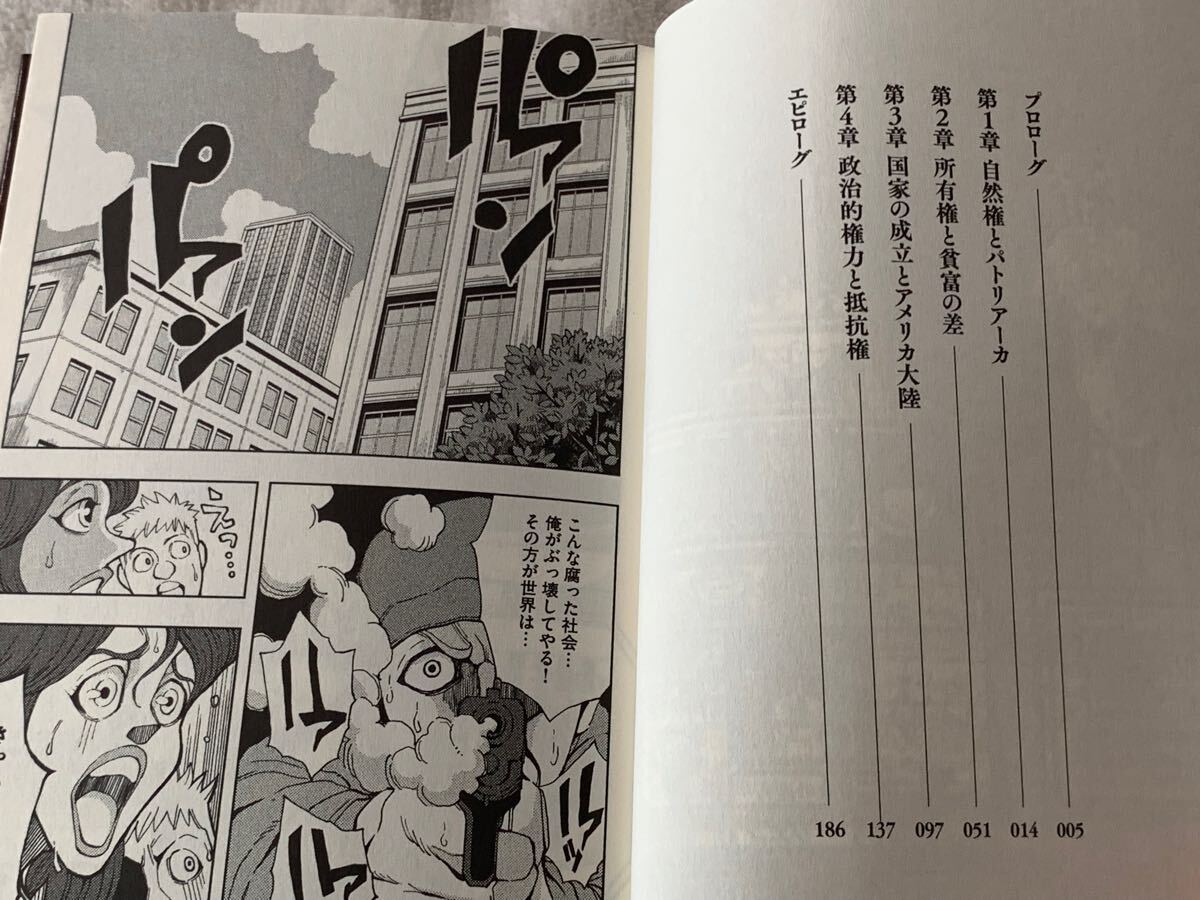 プロローグ 005
第1章 自然権とパトリアーカ 014
第2章 所有権と貧富の差 051
第3章 国家の成立とアメリカ大陸 097
第4章 政治的権力と抵抗権 137
エピローグ 186
パァン
パァン
えっ…
こんな腐った社会…
俺がぶっ壊してやる!
その方が世界は…
ハァ
ハァ
ハァ
ハァ